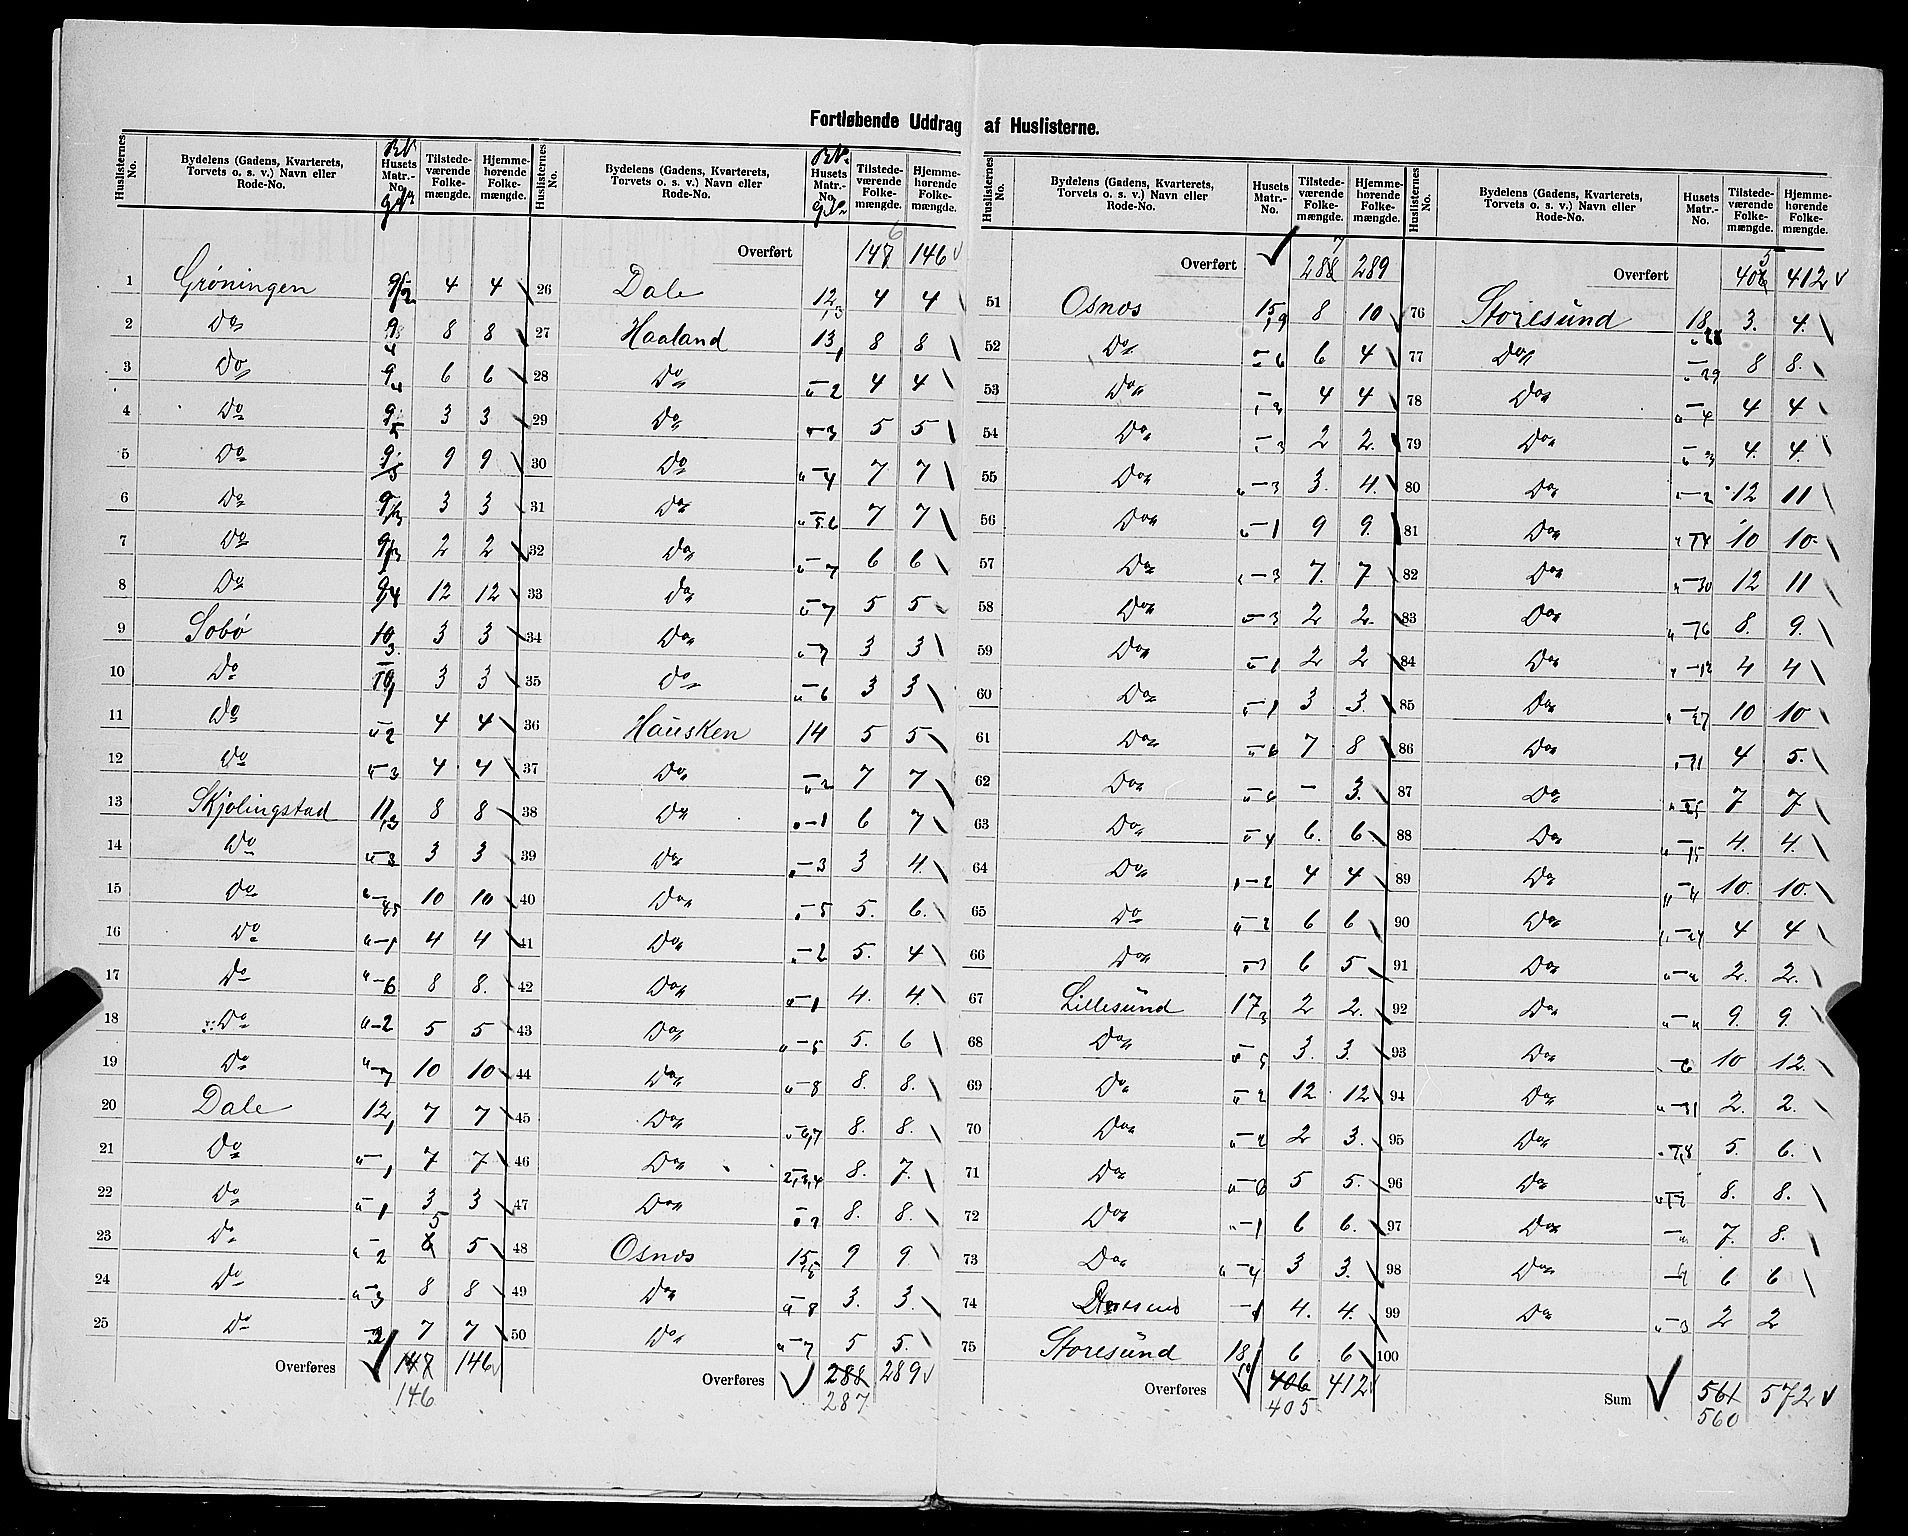 Fortløbende Uddrag af Huslisterne.
Huslisternes No. | Bydelens (Gadens, Kvarterets, Torvets o. s. v.) Navn eller Rode-No. | Husets Matr.-No. | Tilstedeværende Folkemængde. | Hjemmehørende Folkemængde.
1 Grøningen 4 4
2 Do 8 8
3 Do 9 4 6 6
4 Do 9 5 3 3
5 Do 9 5 9 9
6 Do 3 3
7 Do 9/3 2 2
8 Do 9/4 12 12
9 Sobø 10 3 3 3
10 Do 10 1 3 3
11 Do "2 4 4
12 Do "-3 4 4
13 Skjølingstad 11,3 8 8
14 Do "-3 3 3
15 Do 10 10
16 Do 4 4
17 Do "-6 8 8.
18 Do "-2 5 5
19 Do "-7 10 10
20 Dale 12,1 7 7
21 Do "-1 7 7
22 Do "-1 3 3
23 Do "-2 5 5
24 Do "-3 8 8
25 Do 7 7
Overføres 147 146
146
Huslisternes No. | Bydelens (Gadens, Kvarterets, Torvets o. s. v.) Navn eller Rode-No. | Husets Matr.-No. | Tilstedeværende Folkemængde. | Hjemmehørende Folkemængde.
Overført 147 6 146
26 Dale 12,3 4 4
27 Haaland 13,1 8 8
28 Do "-2 4 4
29 Do "-3 5 5
30 Do "-4 7 7
31 Do "5.6 7 7
32 Do "-7 6 6
33 Do "-7 5 5
34 Do "-7 3 3
35 Do "-6 3 3
36 Hausken 14 5 5
37 Do "-2 7 7
38 Do "-1 6 7
39 Do "-3 3 4.
40 Do "-5 5. 6.
41 Do "-2 5. 4
42 Do "-1 4. 4.
43 Do "-5 5. 6
44 Do "-8 8. 8.
45 Do "-6,7 8. 8.
46 Do 2,3,4 8. 7.
47 Do "-2 8. 8.
48 Osnes 15, 9 9.
49 Do "-8 3. 3.
50 Do "-7 5 5.
Overføres 288 289
287
Huslisternes No. | Bydelens (Gadens, Kvarterets, Torvets o. s. v.) Navn eller Rode-No. | Husets Matr.-No. | Tilstedeværende Folkemængde. | Hjemmehørende Folkemængde.
Overført 288 7 289
51 Osnes 15,9 8 10
52 Do "-6 6 4
53 Do 4 4
54 Do "-3 2 2.
55 Do "-3 3. 4.
56 Do "-1 9 9.
57 Do "-3 7. 7
58 Do "-3 2 2.
59 Do "-1 2 2
60 Do "-1 3 3.
61 Do "-6 7 8
62 Do - 3.
63 Do "-4 6. 6.
64 Do "-2 4 4
65 Do "-2 6 6
66 Do "-3 6 5
67 Lillesund 17,3 2 2.
68 Do "-5 3. 3.
69 Do "-2 12 12
70 Do "-2 2 3.
71 Do "-6 5 5.
72 Do "-1 6 6.
73 Do "-4 3 3.
74 4. 4.
75 Storesund 18, 6 6
Overføres 406 412
405
Huslisternes No. | Bydelens (Gadens, Kvarterets, Torvets o. s. v.) Navn eller Rode-No. | Husets Matr.-No. | Tilstedeværende Folkemængde. | Hjemmehørende Folkemængde.
Overført 406 5 412
76 Storesund 18 3. 4.
77 Do "-29 8 8.
78 Do "-4 4 4
79 Do "-3 4. 4.
80 Do "-2 12 11
81 Do 10 10
82 Do "-30 12 11
83 Do 8. 9.
84 Do "-12 4 4
85 Do "-27 10 10
86 Do "-31 4 5.
87 Do 7 7
88 Do "-15 4. 4.
89 Do "-4 10. 10.
90 Do 4 4
91 Do 2. 2.
92 Do 9. 9.
93 Do "-6 10 12.
94 Do "-31 2. 2.
95 Do 5. 6.
96 Do 8. 8.
97 Do 7. 8.
98 Do 6 6
99 Do "-3 2 2
100
Sum 561 572
560